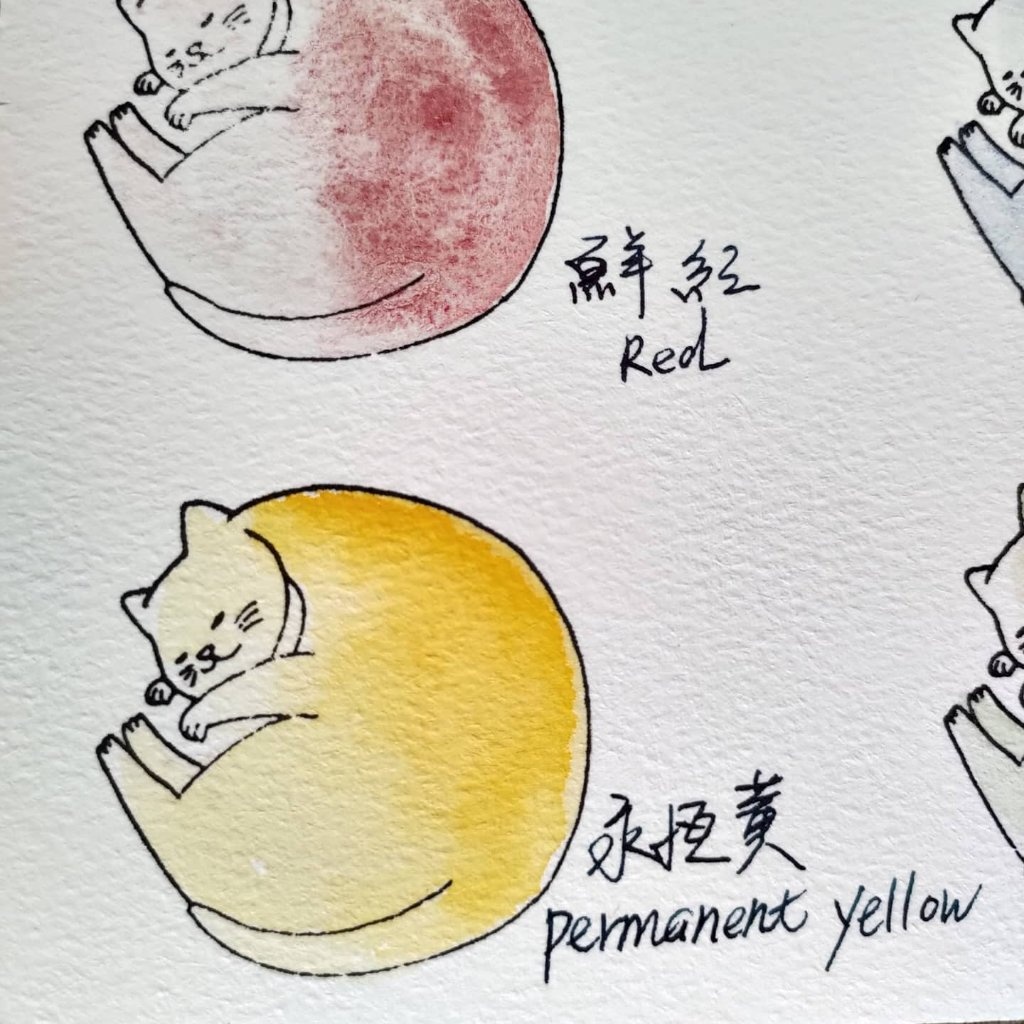 鮮紅
Red
永恆黃
permanent yellow